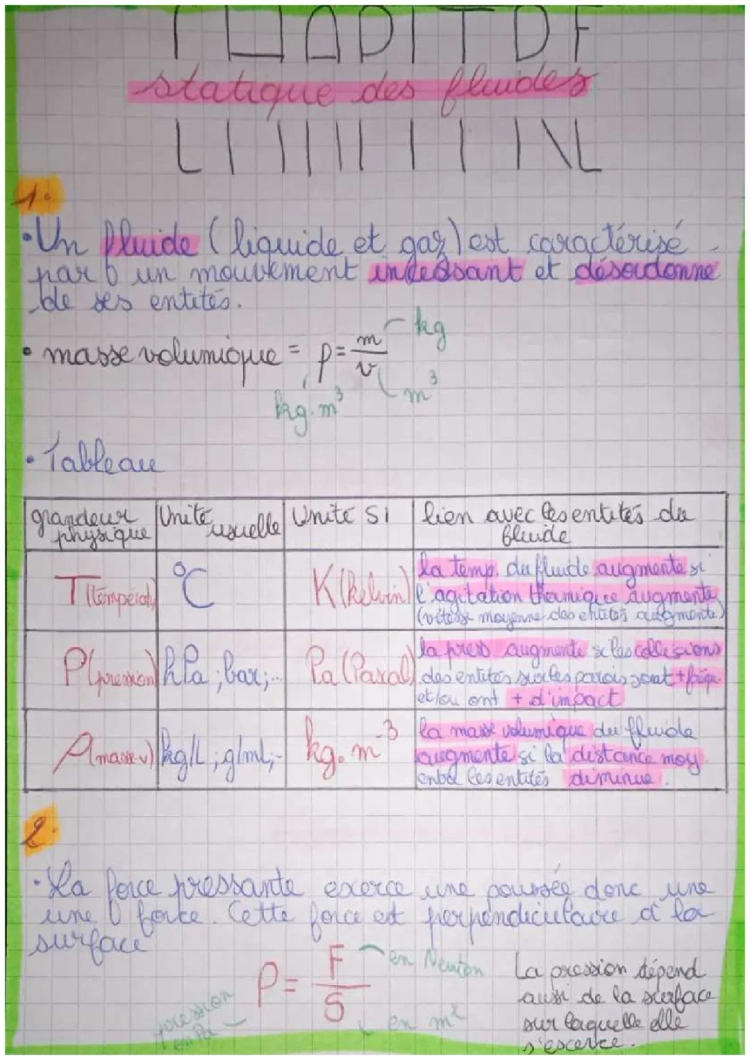 CHAPITRE
statique des fluides
1.
• Un fluide (liquide et gaz) est caractérisé
par un mouvement incessant et désordonné
de ses entités.
• masse volumique = ρ = m/v
kg
m³
kg.m³
• Tableau
grandeur physique | Unité usuelle | Unité SI | lien avec les entités du fluide
T (températ) | °C | K (Kelvin) | la temp. du fluide augmente si
l'agitation thermique augmente
(vitesse moyenne des entités augmente)
P (pression) | hPa ; bar ; .. | Pa (Pascal) | la press augmente si les collisions
des entités sur les parois sont + fréq.
et/ou ont + d'impact
ρ (masse v) | kg/L ; g/mL ; - | kg.m⁻³ | la masse volumique du fluide
augmente si la distance moy.
entre les entités diminue.
2.
• La force pressante exerce une poussée donc une
une force. Cette force est perpendiculaire à la
surface
P = F/S
en Newton
en m²
pression
en Pa
La pression dépend
aussi de la surface
sur laquelle elle
s'exerce.